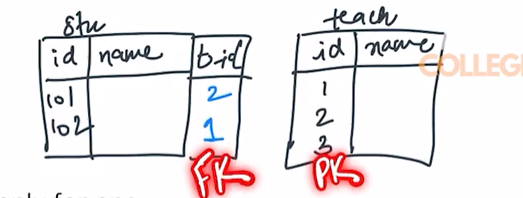 stu
id name t-id
101 2
102 1
FK
teach
id name
1
2
3
PK
COLLEGE